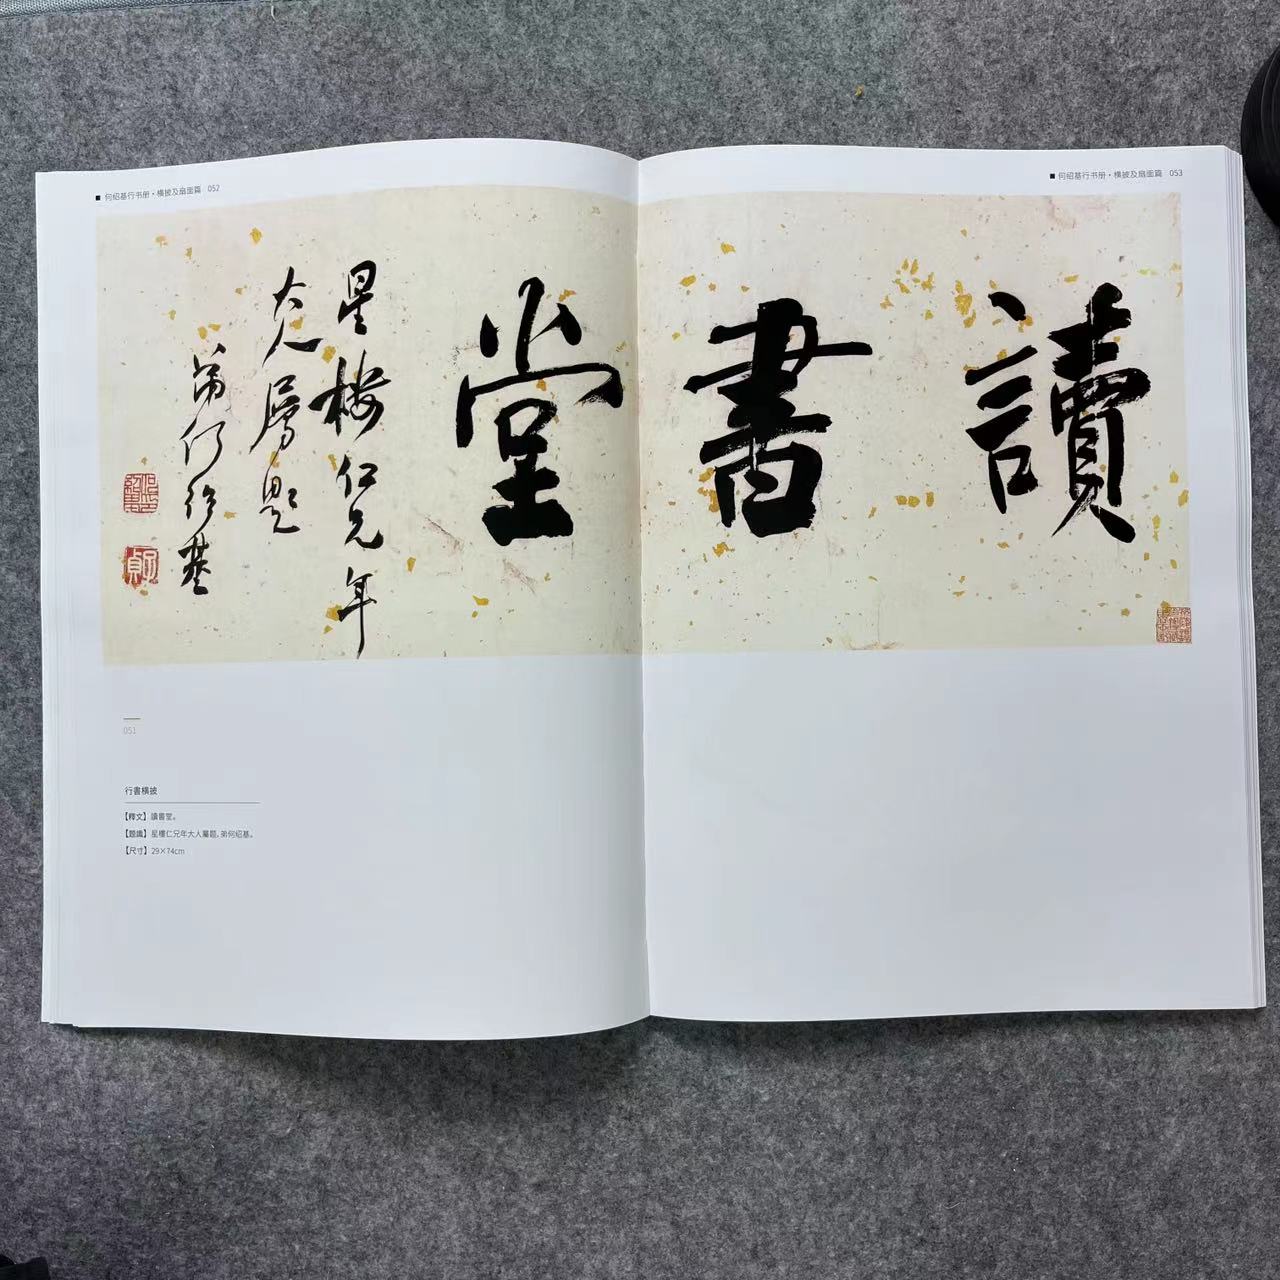 ■ 何绍基行书册·横披及扇面篇 052
■ 何绍基行书册·横披及扇面篇 053
讀書堂
星楼仁兄年
大人属题
弟何绍基
051
行書横披
【釋文】讀書堂。
【題識】星樓仁兄年大人屬題，弟何绍基。
【尺寸】29×74cm